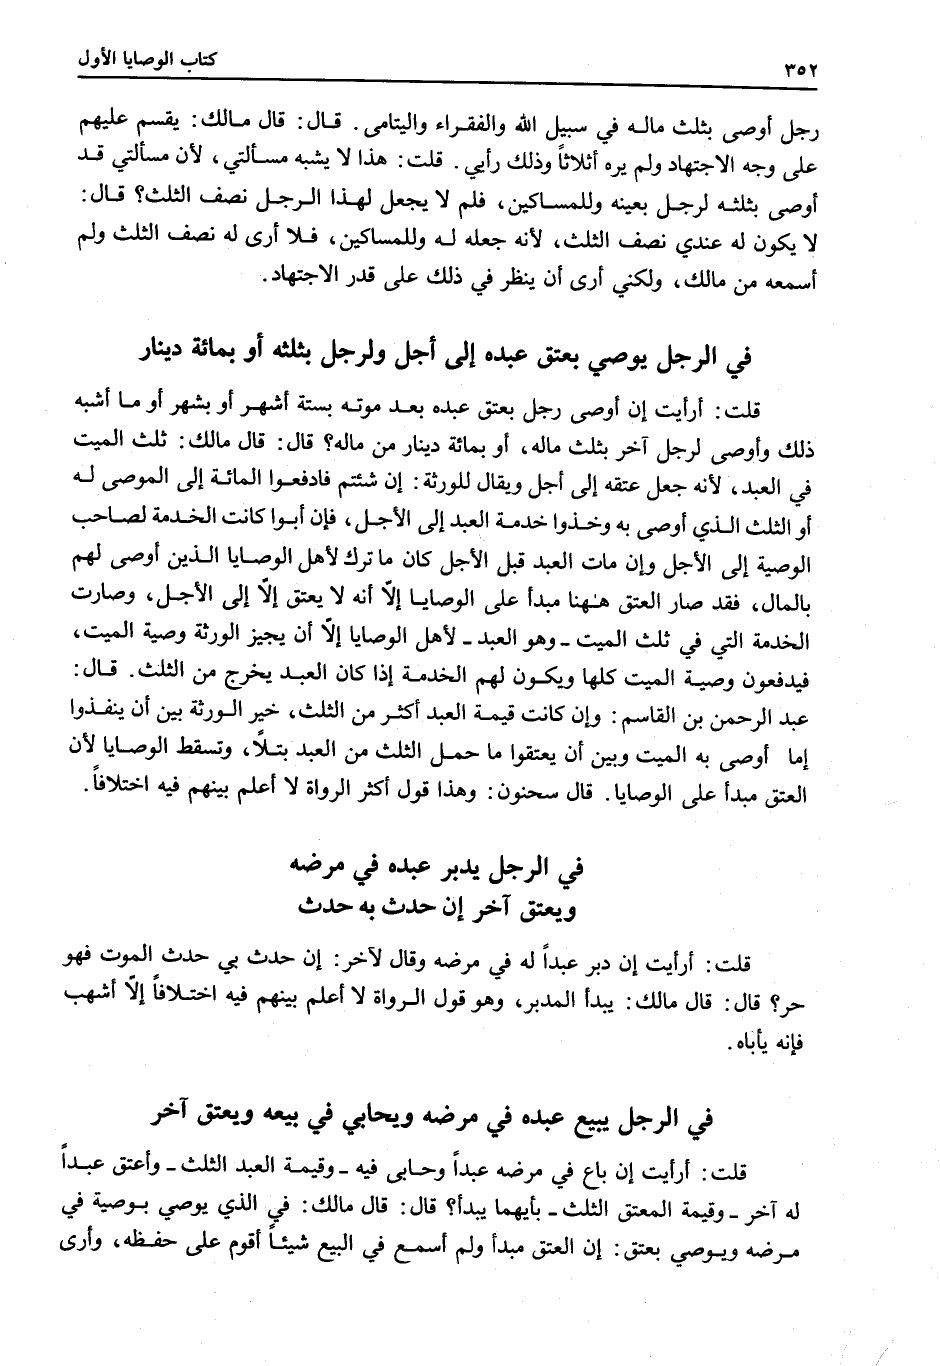 ٣٥٢
كتاب الوصايا الأول
رجل أوصى بثلث ماله في سبيل الله والفقراء واليتامى. قال: قال مالك: يقسم عليهم
على وجه الاجتهاد ولم يره أثلاثاً وذلك رأيي. قلت: هذا لا يشبه مسألتي، لأن مسألتي قد
أوصى بثلثه لرجل بعينه وللمساكين، فلم لا يجعل لهذا الرجل نصف الثلث؟ قال:
لا يكون له عندي نصف الثلث، لأنه جعله له وللمساكين، فلا أرى له نصف الثلث ولم
أسمعه من مالك، ولكني أرى أن ينظر في ذلك على قدر الاجتهاد.
في الرجل يوصي بعتق عبده إلى أجل ولرجل بثلثه أو بمائة دينار
قلت: أرأيت إن أوصى رجل بعتق عبده بعد موته بستة أشهر أو بشهر أو ما أشبه
ذلك وأوصى لرجل آخر بثلث ماله، أو بمائة دينار من ماله؟ قال: قال مالك: ثلث الميت
في العبد، لأنه جعل عتقه إلى أجل ويقال للورثة: إن شئتم فادفعوا المائة إلى الموصى له
أو الثلث الذي أوصى به وخذوا خدمة العبد إلى الأجل، فإن أبوا كانت الخدمة لصاحب
الوصية إلى الأجل وإن مات العبد قبل الأجل كان ما ترك لأهل الوصايا الذين أوصى لهم
بالمال، فقد صار العتق هٰهنا مبدأ على الوصايا إلّا أنه لا يعتق إلّا إلى الأجل، وصارت
الخدمة التي في ثلث الميت - وهو العبد - لأهل الوصايا إلّا أن يجيز الورثة وصية الميت،
فيدفعون وصية الميت كلها ويكون لهم الخدمة إذا كان العبد يخرج من الثلث. قال:
عبد الرحمن بن القاسم: وإن كانت قيمة العبد أكثر من الثلث، خير الورثة بين أن ينفذوا
إما أوصى به الميت وبين أن يعتقوا ما حمل الثلث من العبد بتلاً، وتسقط الوصايا لأن
العتق مبدأ على الوصايا. قال سحنون: وهذا قول أكثر الرواة لا أعلم بينهم فيه اختلافاً.
في الرجل يدبر عبده في مرضه
ويعتق آخر إن حدث به حدث
قلت: أرأيت إن دبر عبداً له في مرضه وقال لآخر: إن حدث بي حدث الموت فهو
حر؟ قال: قال مالك: يبدأ المدبر، وهو قول الرواة لا أعلم بينهم فيه اختلافاً إلّا أشهب
فإنه يأباه.
في الرجل يبيع عبده في مرضه ويحابي في بيعه ويعتق آخر
قلت: أرأيت إن باع في مرضه عبداً وحابى فيه - وقيمة العبد الثلث - وأعتق عبداً
له آخر - وقيمة المعتق الثلث - بأيهما يبدأ؟ قال: قال مالك: في الذي يوصي بوصية في
مرضه ويوصي بعتق: إن العتق مبدأ ولم أسمع في البيع شيئاً أقوم على حفظه، وأرى